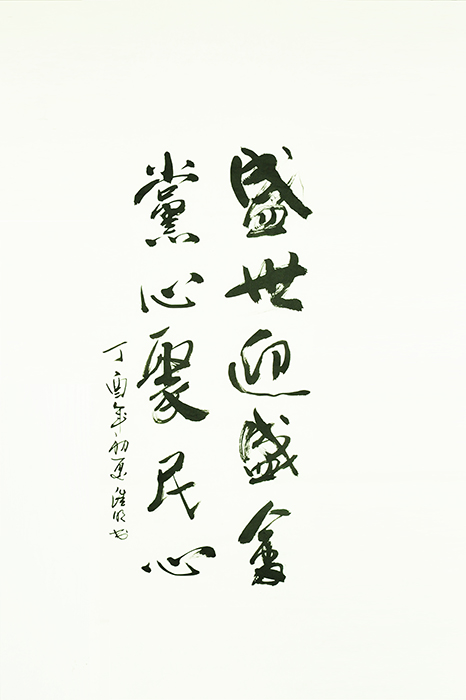 盛世迎盛會
黨心聚民心
丁酉年初夏